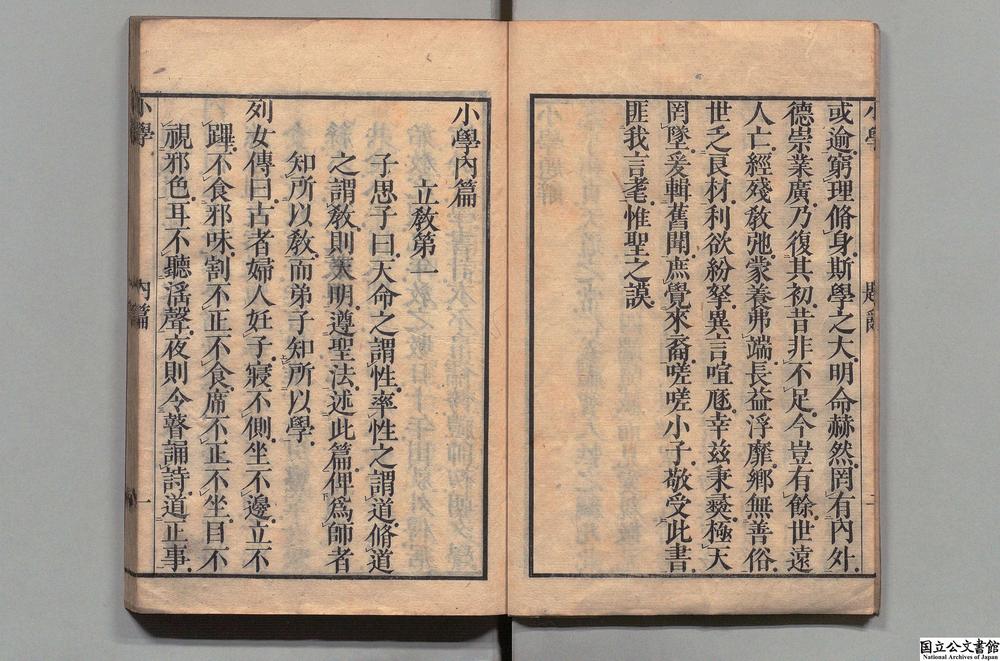 小學
題辭
二
或逾窮理脩身斯學之大明命赫然罔有內外
德崇業廣乃復其初昔非不足今豈有餘世遠
人亡經殘敎弛蒙養弗端長益浮靡鄉無善俗
世乏良材利欲紛拏異言喧豗幸兹秉彝極天
罔墜爰輯舊聞庶覺來裔嗟嗟小子敬受此書
匪我言耄惟聖之謨
小學內篇
立敎第一
子思子曰天命之謂性率性之謂道脩道
之謂敎則天明遵聖法述此篇俾爲師者
知所以敎而弟子知所以學
列女傳曰古者婦人妊子寢不側坐不邊立不
蹕不食邪味割不正不食席不正不坐目不
視邪色耳不聽淫聲夜則令瞽誦詩道正事
小學
內篇
一
国立公文書館
National Archives of Japan